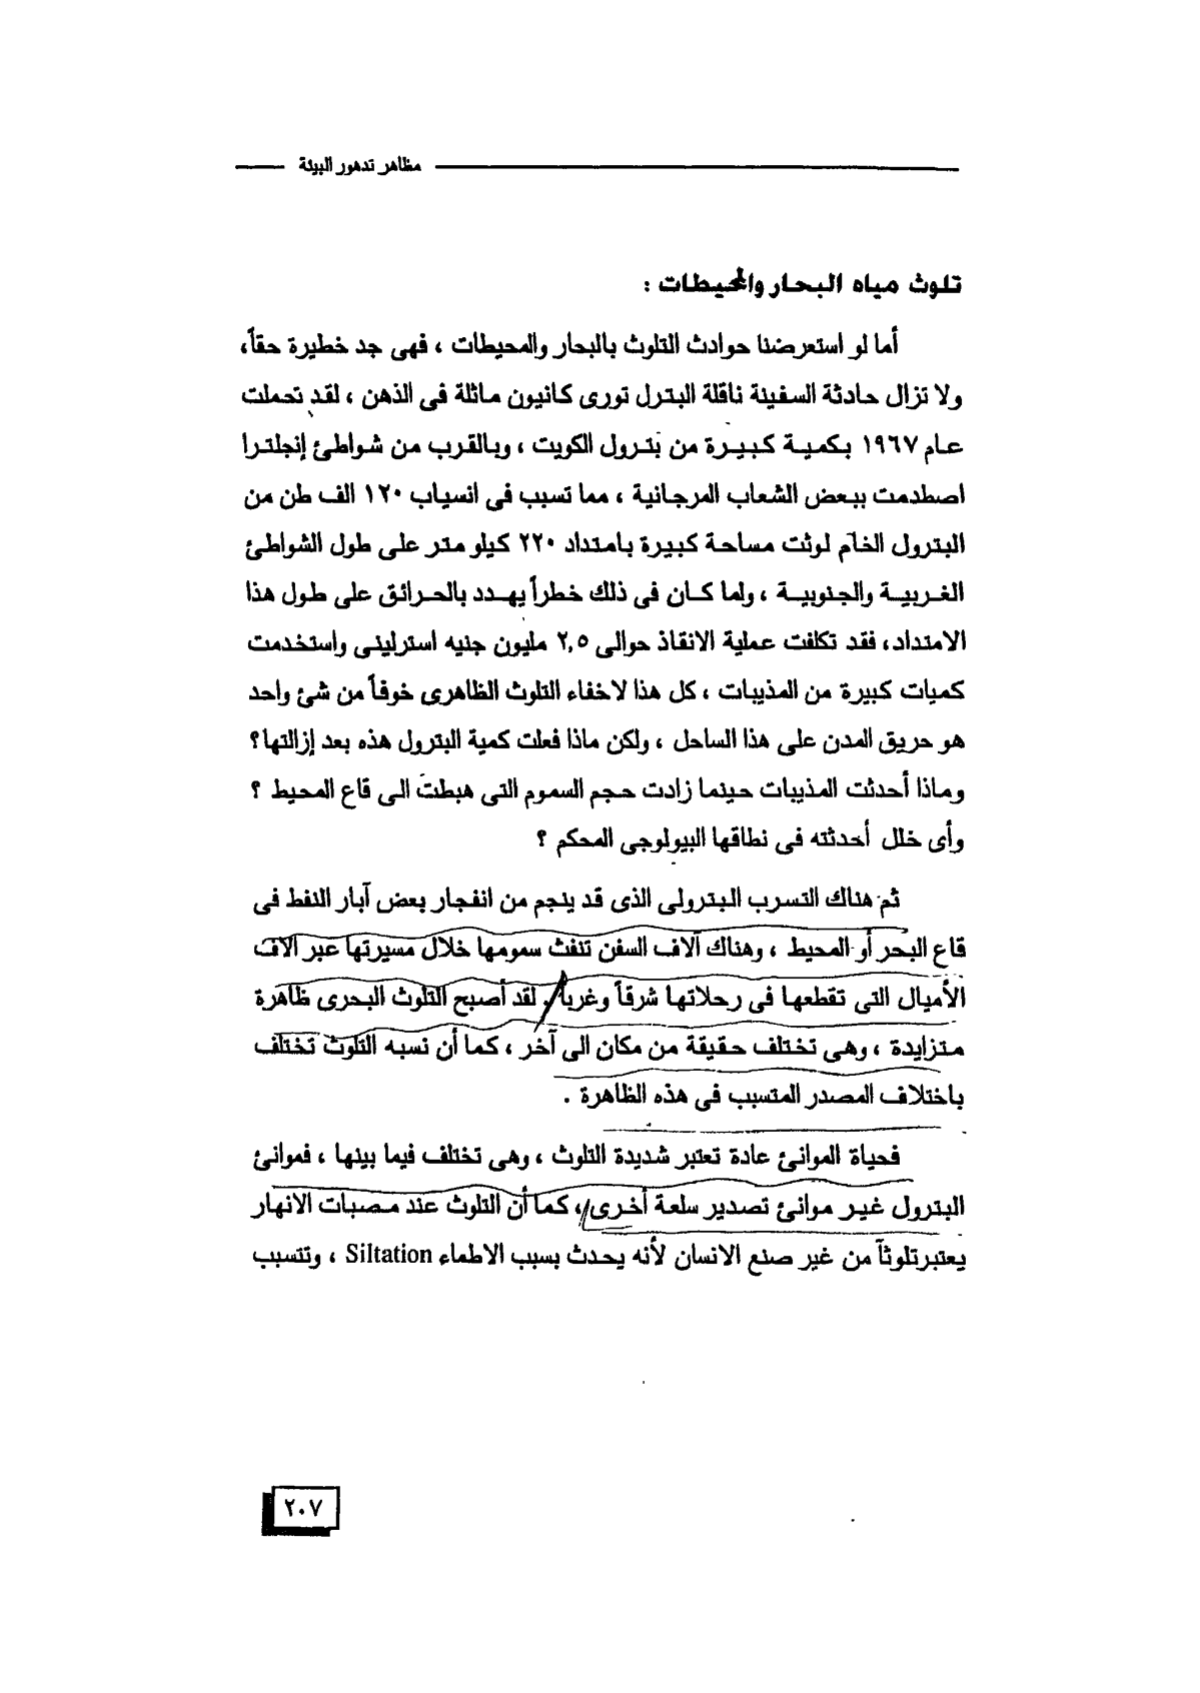 مظاهر تدهور البيئة
تلوث مياه البحار والمحيطات :
أما لو استعرضنا حوادث التلوث بالبحار والمحيطات ، فهى جد خطيرة حقاً،
ولا تزال حادثة السفينة ناقلة البترل تورى كانيون ماثلة فى الذهن ، لقد تحملت
عام ١٩٦٧ بكمية كبيرة من بترول الكويت ، وبالقرب من شواطئ إنجلترا
اصطدمت ببعض الشعاب المرجانية ، مما تسبب فى انسياب ١٢٠ الف طن من
البترول الخام لوثت مساحة كبيرة بامتداد ٢٢٠ كيلو متر على طول الشواطئ
الغربية والجنوبية ، ولما كان فى ذلك خطراً يهدد بالحرائق على طول هذا
الامتداد، فقد تكلفت عملية الانقاذ حوالى ٢,٥ مليون جنيه استرلينى واستخدمت
كميات كبيرة من المذيبات ، كل هذا لاخفاء التلوث الظاهرى خوفاً من شئ واحد
هو حريق المدن على هذا الساحل ، ولكن ماذا فعلت كمية البترول هذه بعد إزالتها؟
وماذا أحدثت المذيبات حينما زادت حجم السموم التى هبطت الى قاع المحيط ؟
وأى خلل أحدثته فى نطاقها البيولوجى المحكم ؟
ثم هناك التسرب البترولى الذى قد ينجم من انفجار بعض آبار النفط فى
قاع البحر أو المحيط ، وهناك آلاف السفن تنفث سمومها خلال مسيرتها عبر آلاف
الأميال التى تقطعها فى رحلاتها شرقاً وغرباً، لقد أصبح التلوث البحرى ظاهرة
متزايدة ، وهى تختلف حقيقة من مكان الى آخر ، كما أن نسبه التلوث تختلف
باختلاف المصدر المتسبب فى هذه الظاهرة .
فحياة الموانئ عادة تعتبر شديدة التلوث ، وهى تختلف فيما بينها ، فموانئ
البترول غير موانئ تصدير سلعة أخرى ، كما أن التلوث عند مصبات الانهار
يعتبرتلوثآ من غير صنع الانسان لأنه يحدث بسبب الاطماء Siltation ، وتتسبب
٢٠٧